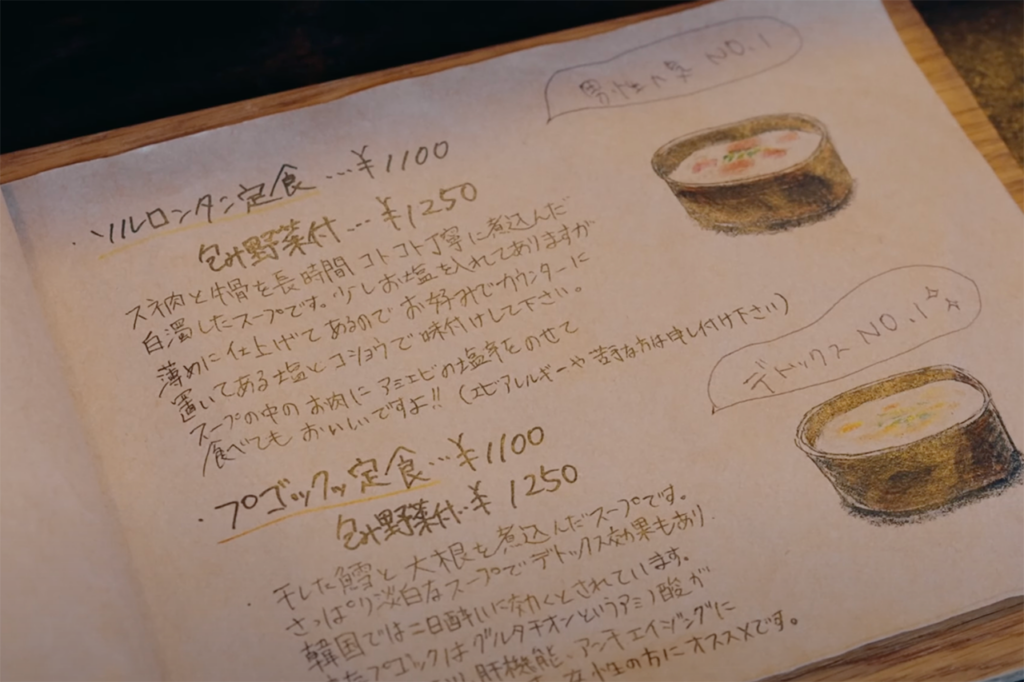 男性人気 NO.1
・ソルロンタン定食…¥1100
包み野菜付…¥1250
スネ肉と牛骨を長時間コトコト丁寧に煮込んだ
白濁したスープです。少しお塩を入れてありますが
薄めに仕上げてあるのでお好みでカウンターに
置いてある塩とコショウで味付けして下さい。
スープの中のお肉にアミエビの塩辛をのせて
食べてもおいしいですよ!!(エビアレルギーや苦手な方は申し付け下さい)
デトックス NO.1☆☆
・プゴックッ定食…¥1100
包み野菜付…¥1250
・干した鱈と大根を煮込んだスープです。
さっぱり淡白なスープでデトックス効果もあり
韓国では二日酔いに効くとされています。
またプゴックはグルタチオンというアミノ酸が
肝機能、アンチエイジングに
女性の方にオススメです。